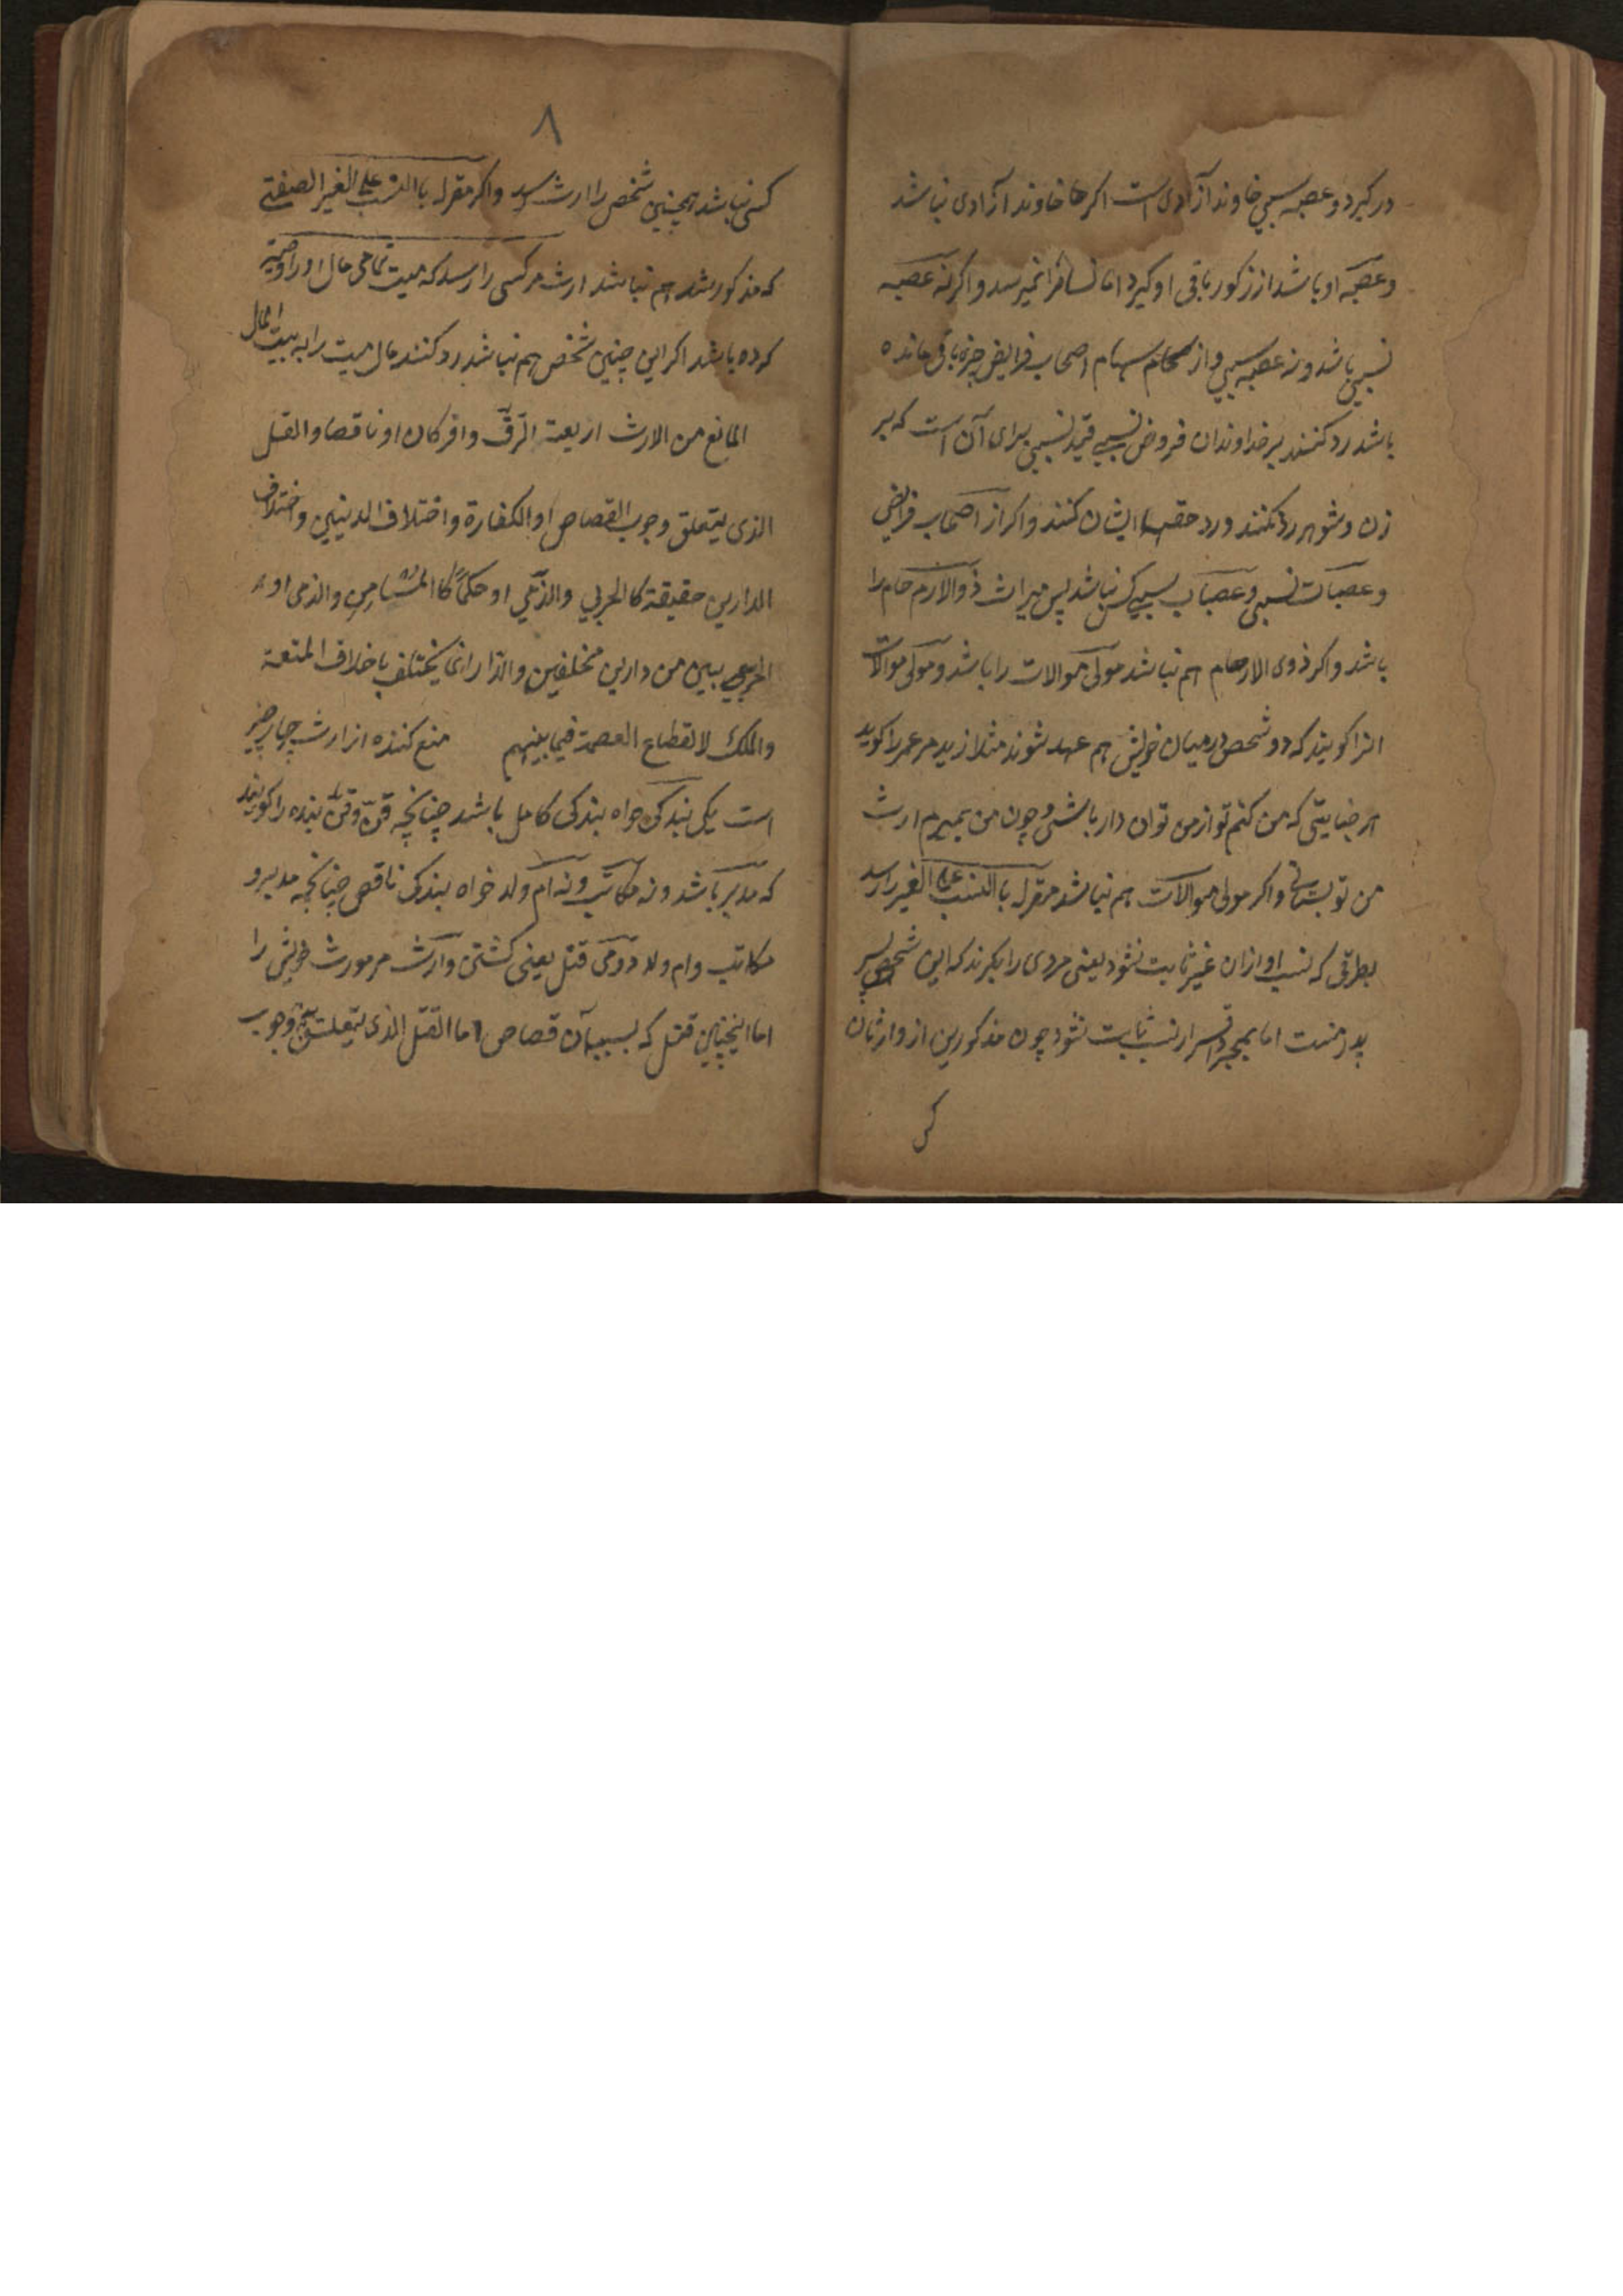 در کیرد و عصبه سببی خاوند آزادی است اکر خاوند آزادی نباشد
و عصبه او باشد از زکور باقی او کیرد اما نسا را نمیرسد و اکر نه عصبه
نسبی باشد و نه عصبه سببی و از سهام اصحاب فرایض چیزه باقی مانده
باشد رد کنند بر خداوندان فروض نسبی قید نسبی برای آن است که بر
زن و شوهر رد نکنند و رد حقها ایشان کنند و اکر از اصحاب فرایض
و عصبات نسبی و عصبات سببی کس نباشد پس میراث ذوالارحام را
باشد و اکر ذوی الارحام هم نباشد مولی موالات را باشد و مولی موالات
انرا کویند که دو شخص درمیان خویش هم عهد شوند مثلا زید مر عمر را کوید
هر جنایتی که من کنم تو از من توان دار باشی و چون من بمیرم ارث
من تو بستانی و اکر مولی موالات هم نباشد مقرله باالنسب علی الغیر را رسد
بطرقی که نسب او ازان غیر ثابت نشود یعنی مردی را بکیرند که این شخص پسر
پدر منست اما بمجرد اقرار نسب ثابت نشود چون مذکورین از وارثان
کس
۸
کسی نباشد همچنین شخص را ارث رسد و اکر مقرله باالنسب علی الغیر الصیفتی
که مذکور شد هم نباشد ارث مر کسی را رسد که میت تمامی مال او را وصیة
کرده باشد اکر این چنین شخص هم نباشد رد کنند مال میت را به بیت المال
المانع من الارث اربعة الرق وافر کان او ناقصا والقتل
الذی یتعلق وجوب القصاص او الکفارة و اختلاف الدینین و اختلاف
الدارین حقیقة کا الحربی والذمی او حکما کا المستامن والذمی او
الحربی بین من دارین مختلفین والدار انما یختلف باختلاف المنعة
والملک لانقطاع العصمة فیما بینهم منع کننده از ارث چهار چیز
است یکی بندکی خواه بندکی کامل باشد چنانچه قن و قن بنده را کویند
که مدبر باشد و نه مکاتب و نه ام ولد خواه بندکی ناقص چنانچه مدبر و
مکاتب و ام ولد دومی قتل یعنی کشتن وارث مر مورث خویش را
اما اینچنین قتل که بسبب آن قصاص اما القتل الذی یتعلق به وجوب